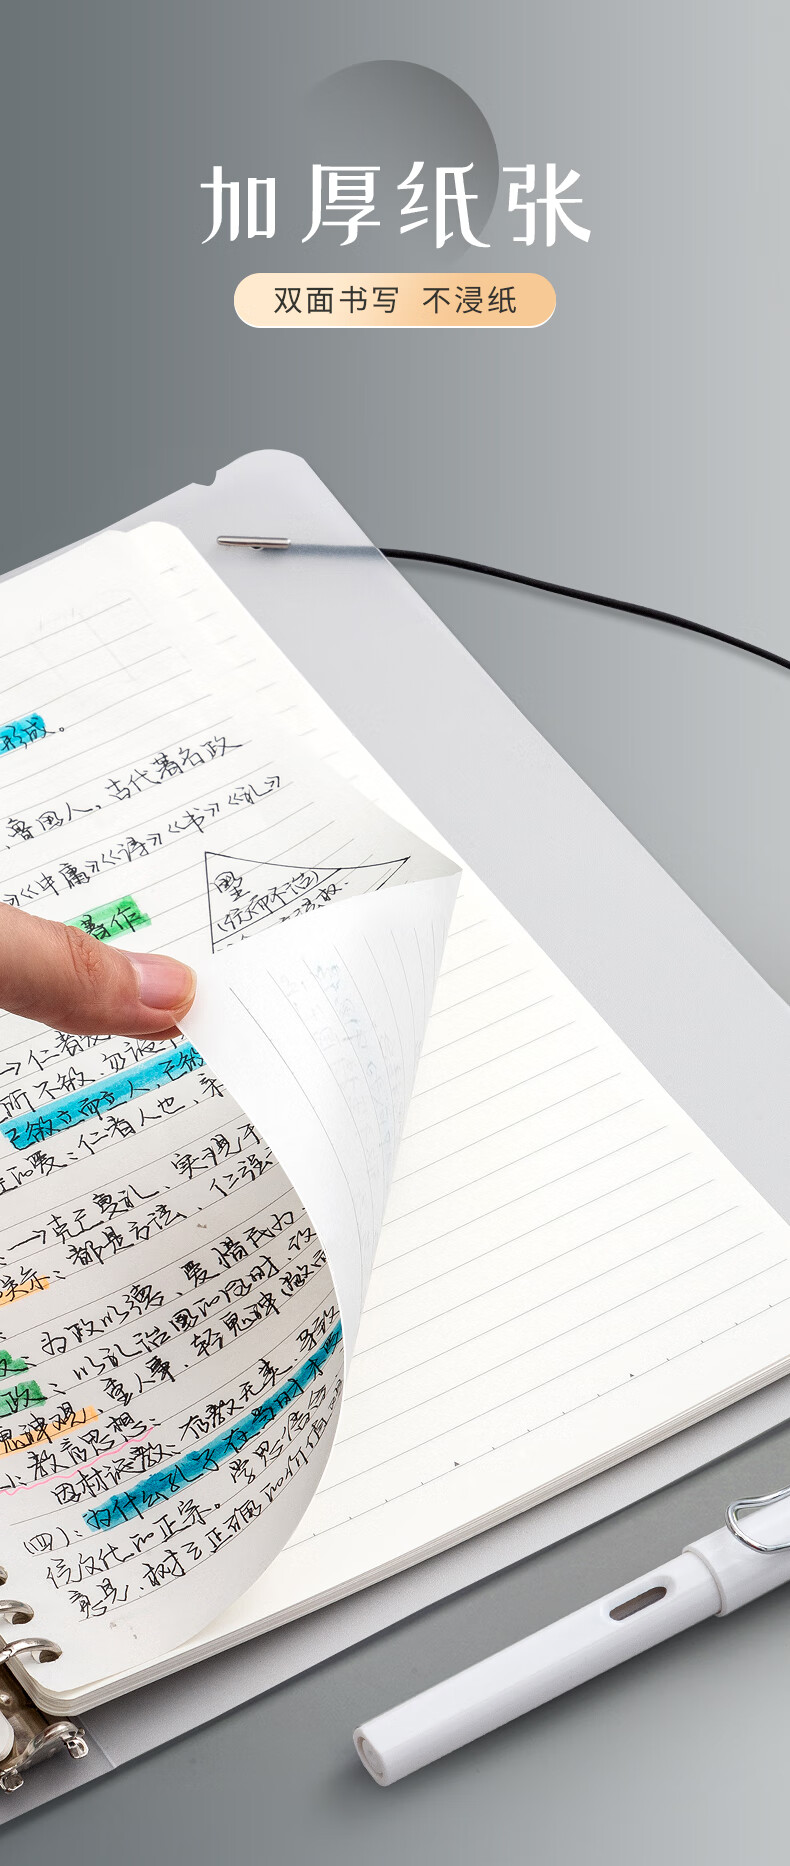 加厚纸张
双面书写 不浸纸
形成。
鲁国人、古代著名政
《中庸》《诗》《书》《礼》
著作
圣
→仁者爱
所不欲、勿施
己欲立而立人、己欲
仁者人也、亲
→克己复礼、实现
都是方法、仁
为政以德、爱惜民力
政：以礼治国的同时、
鬼神观、重人事、轻鬼神
教育思想：
因材施教：有教无类
(四)：为什么孔子在当时不
传文化的正宗。学思结合
意见、树立正确的价值